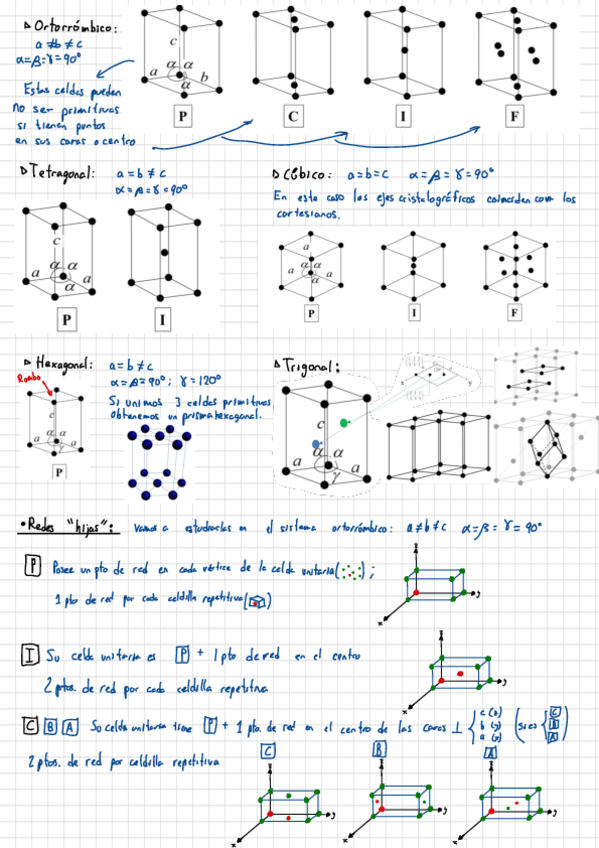 ▷ Ortorrómbico:
a ≠ b ≠ c
α = β = γ = 90°
Estas celdas pueden
no ser primitivas
si tienen puntos
en sus caras o centro
c
α α
a α b
P
C
I
F
▷ Tetragonal: a = b ≠ c
α = β = γ = 90°
c
α α
a α a
P
I
▷ Cúbico: a = b = c α = β = γ = 90°
En este caso los ejes cristalográficos coinciden con los
cartesianos.
a
α α
a α a
P
I
F
▷ Hexagonal: a = b ≠ c
α = β = 90°; γ = 120°
Rombo
Si unimos 3 celdas primitivas
obtenemos un prisma hexagonal.
c
α α
a γ a
P
▷ Trigonal:
c
α α
a γ a
x
y
• Redes "hijas": Vamos a estudiarlas en el sistema ortorrómbico: a ≠ b ≠ c α = β = γ = 90°
P Posee un pto de red en cada vértice de la celda unitaria ( );
1 pto de red por cada celdilla repetitiva ( )
z
y
x
I Su celda unitaria es P + 1 pto de red en el centro
2 ptos. de red por cada celdilla repetitiva
z
y
x
C B A Su celda unitaria tiene P + 1 pto. de red en el centro de las caras ⊥ { c (z) b (y) a (x) ( si es { C B A )
2 ptos. de red por celdilla repetitiva
C
B
A
z
y
x
z
y
x
z
y
x